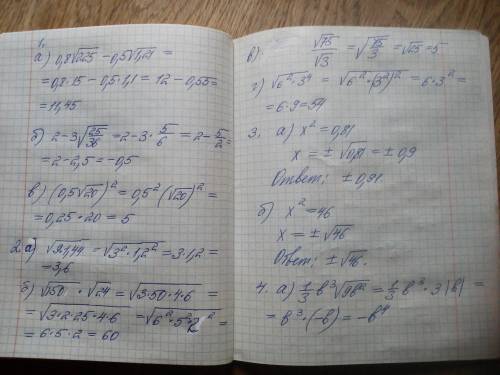 1.
а) 0,8√225 − 0,5√1,21 =
= 0,8·15 − 0,5·1,1 = 12 − 0,55 =
= 11,45
б) 2 − 3√25/36 = 2 − 3 · 5/6 = 2 − 5/2 =
= 2 − 2,5 = −0,5
в) (0,5√20)² = 0,5² (√20)² =
= 0,25 · 20 = 5
2. а) √9·1,44 = √3² · 1,2² = 3·1,2 =
= 3,6
б) √150 · √24 = √3·50·4·6 =
= √3·2·25·4·6 = √6²·5²·2² =
= 6·5·2 = 60
в) √75/√3 = √75/3 = √25 = 5
г) √6²·3⁴ = √6²·(3²)² = 6·3² =
= 6·9 = 54
3. а) x² = 0,81
x = ± √0,81 = ± 0,9
Ответ: ± 0,91.
б) x² = 46
x = ± √46
Ответ: ± √46.
4. а) 1/3 b³ √9b² = 1/3 b³ · 3 |b| =
= b³ · (−b) = −b⁴